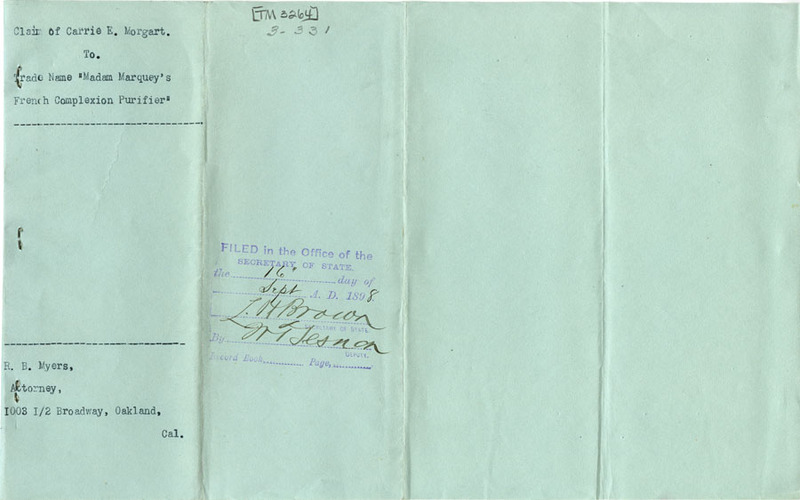 Claim of Carrie E. Morgart.
To.
Trade Name "Madam Marquey's
French Complexion Purifier"
R. B. Myers,
Attorney,
1003 1/2 Broadway, Oakland,
Cal.
[TM 3264]
3-331
FILED in the Office of the
SECRETARY OF STATE,
the 16" day of
Sept A. D. 1898
L. H. Brown
SECRETARY OF STATE
By W T Sesnon
DEPUTY.
Record Book, Page,